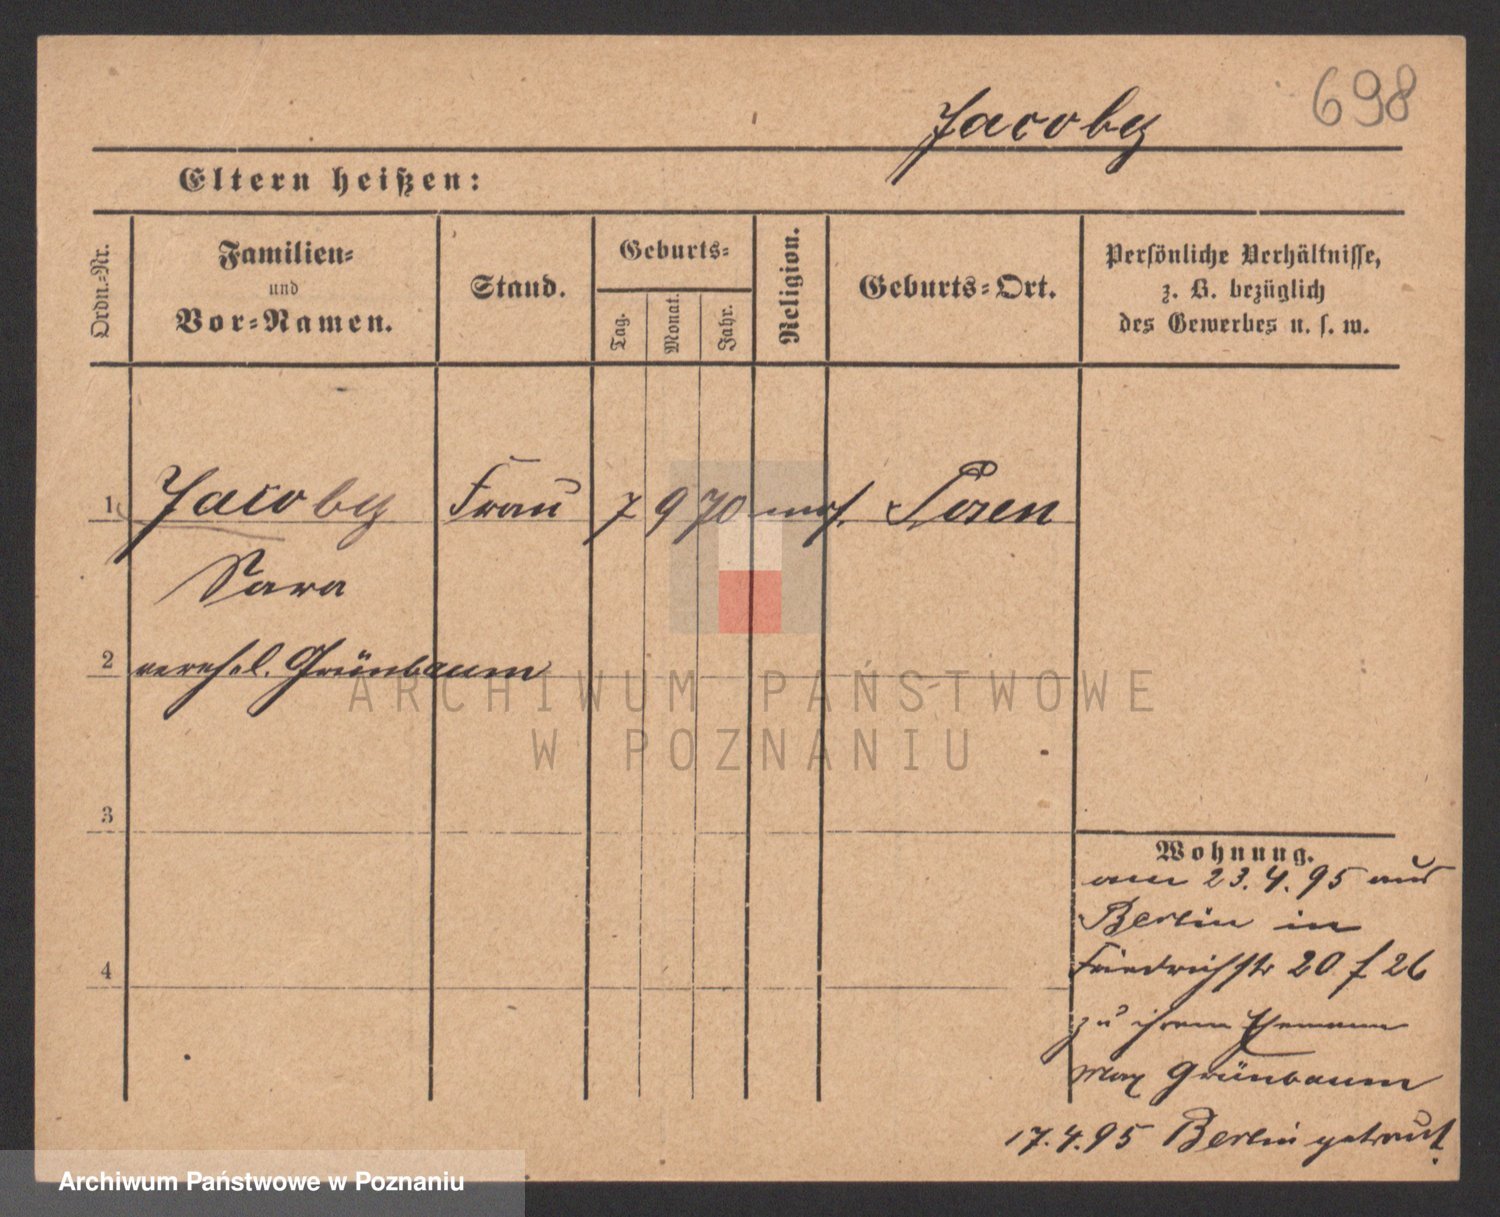 698
Jacoby
Eltern heißen:
Ordn.-Nr.
Familien-
und
Vor-Namen.
Stand.
Geburts-
Tag.
Monat.
Jahr.
Religion.
Geburts-Ort.
Persönliche Verhältnisse,
z. B. bezüglich
des Gewerbes u. s. w.
1 Jacoby Frau 7 9 70 mos. Posen
Sara
2 verehel. Grünbaum
3
4
Wohnung.
am 23.4.95 aus
Berlin in
Friedrichstr 20 f 26
zu ihrem Ehemann
Max Grünbaum
17.4.95 Berlin getraut.
ARCHIWUM PAŃSTWOWE
W POZNANIU
Archiwum Państwowe w Poznaniu